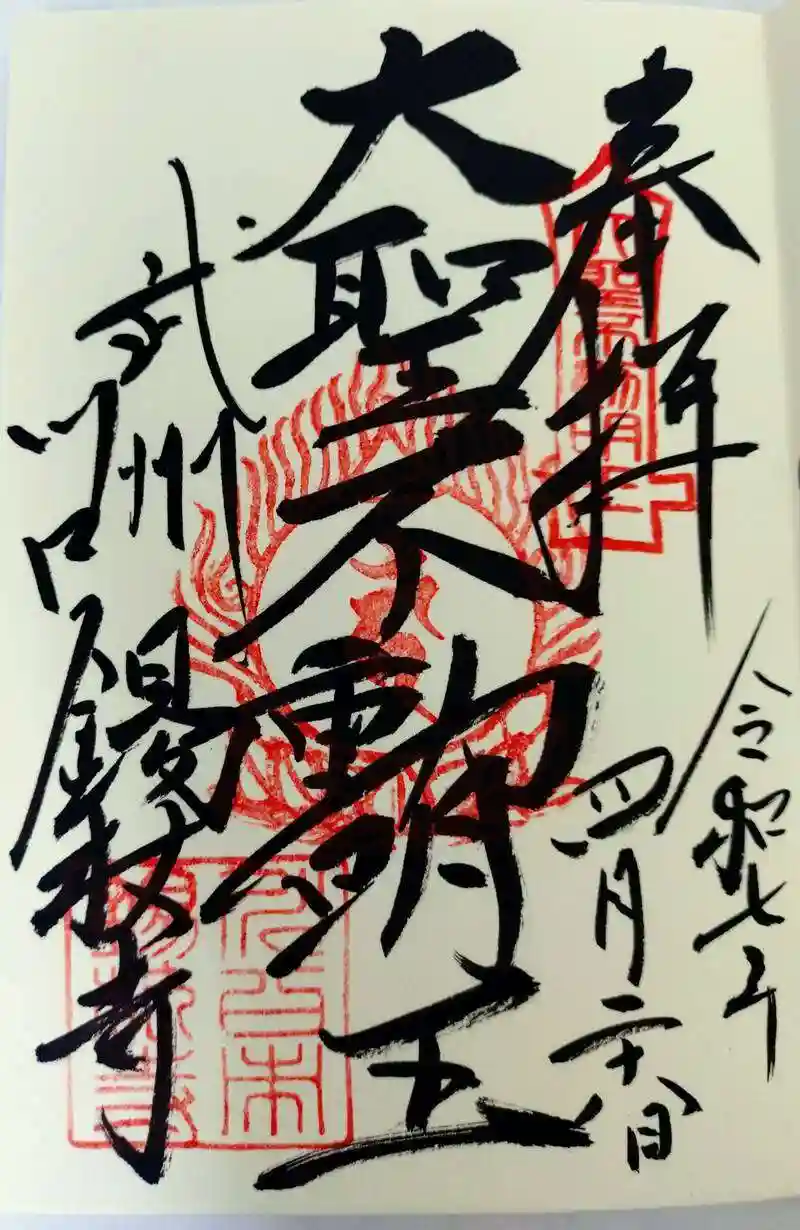 奉拝
令和七年
四月二十八日
大聖不動明王
武州
川口錫杖寺